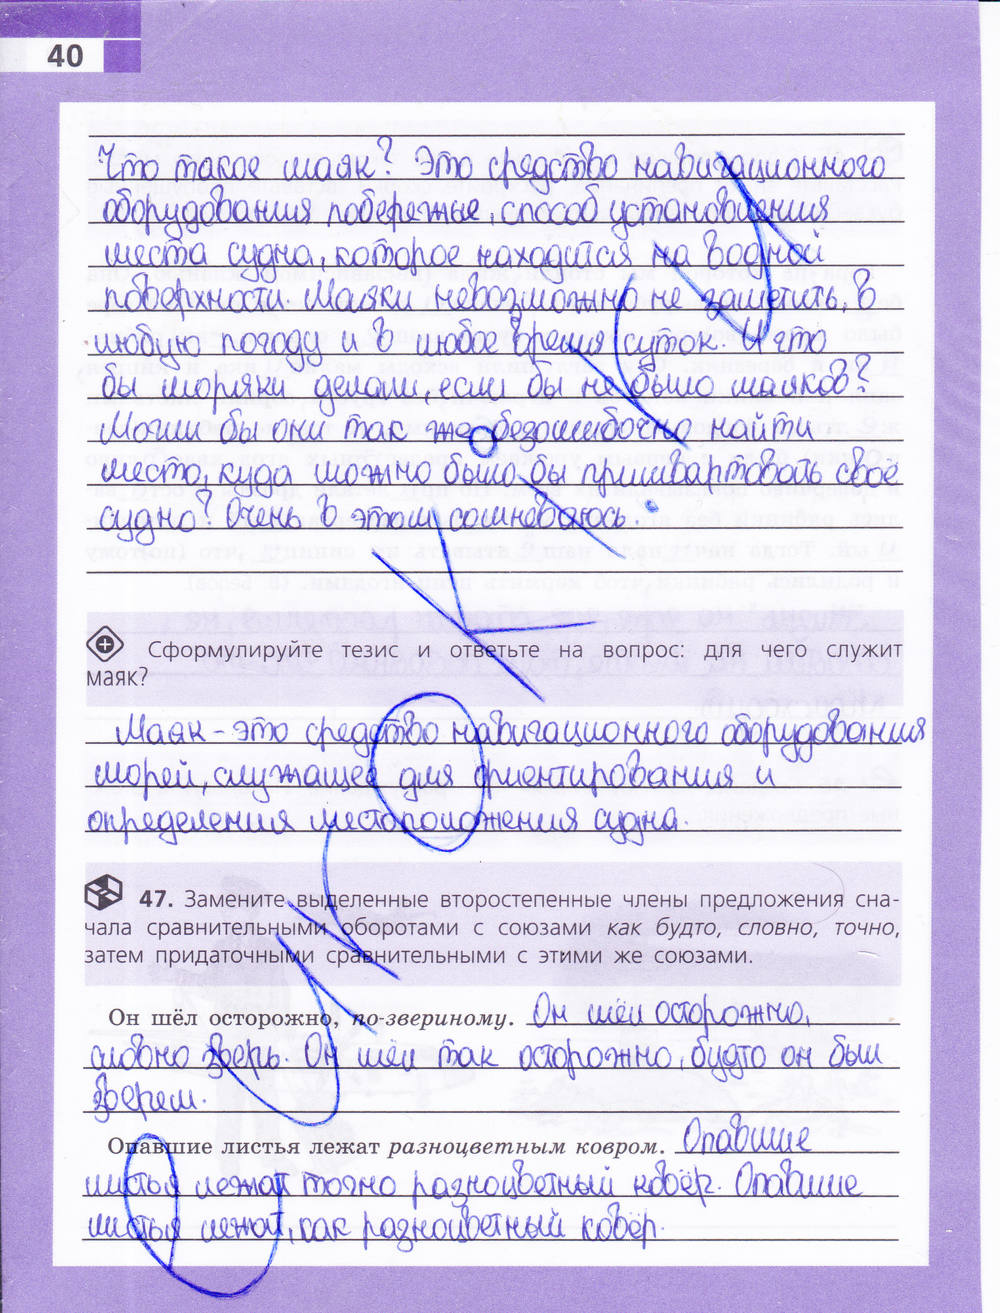 40
Что такое маяк? Это средство навигационного
оборудования побережье, способ установления
места судна, которое находится на водной
поверхности. Маяки невозможно не заметить, в
любую погоду и в любое время суток. И что
бы моряки делали, если бы не было маяков?
Могли бы они так же безошибочно найти
место, куда можно было бы пришвартовать своё
судно? Очень в этом сомневаюсь.
Сформулируйте тезис и ответьте на вопрос: для чего служит
маяк?
Маяк - это средство навигационного оборудования
морей, служащее для ориентирования и
определения местоположения судна.
47. Замените выделенные второстепенные члены предложения сна-
чала сравнительными оборотами с союзами как будто, словно, точно,
затем придаточными сравнительными с этими же союзами.
Он шёл осторожно, по-звериному. Он шёл осторожно,
словно зверь. Он шёл так осторожно, будто он был
зверем.
Опавшие листья лежат разноцветным ковром. Опавшие
листья лежат точно разноцветный ковёр. Опавшие
листья лежат, как разноцветный ковёр.